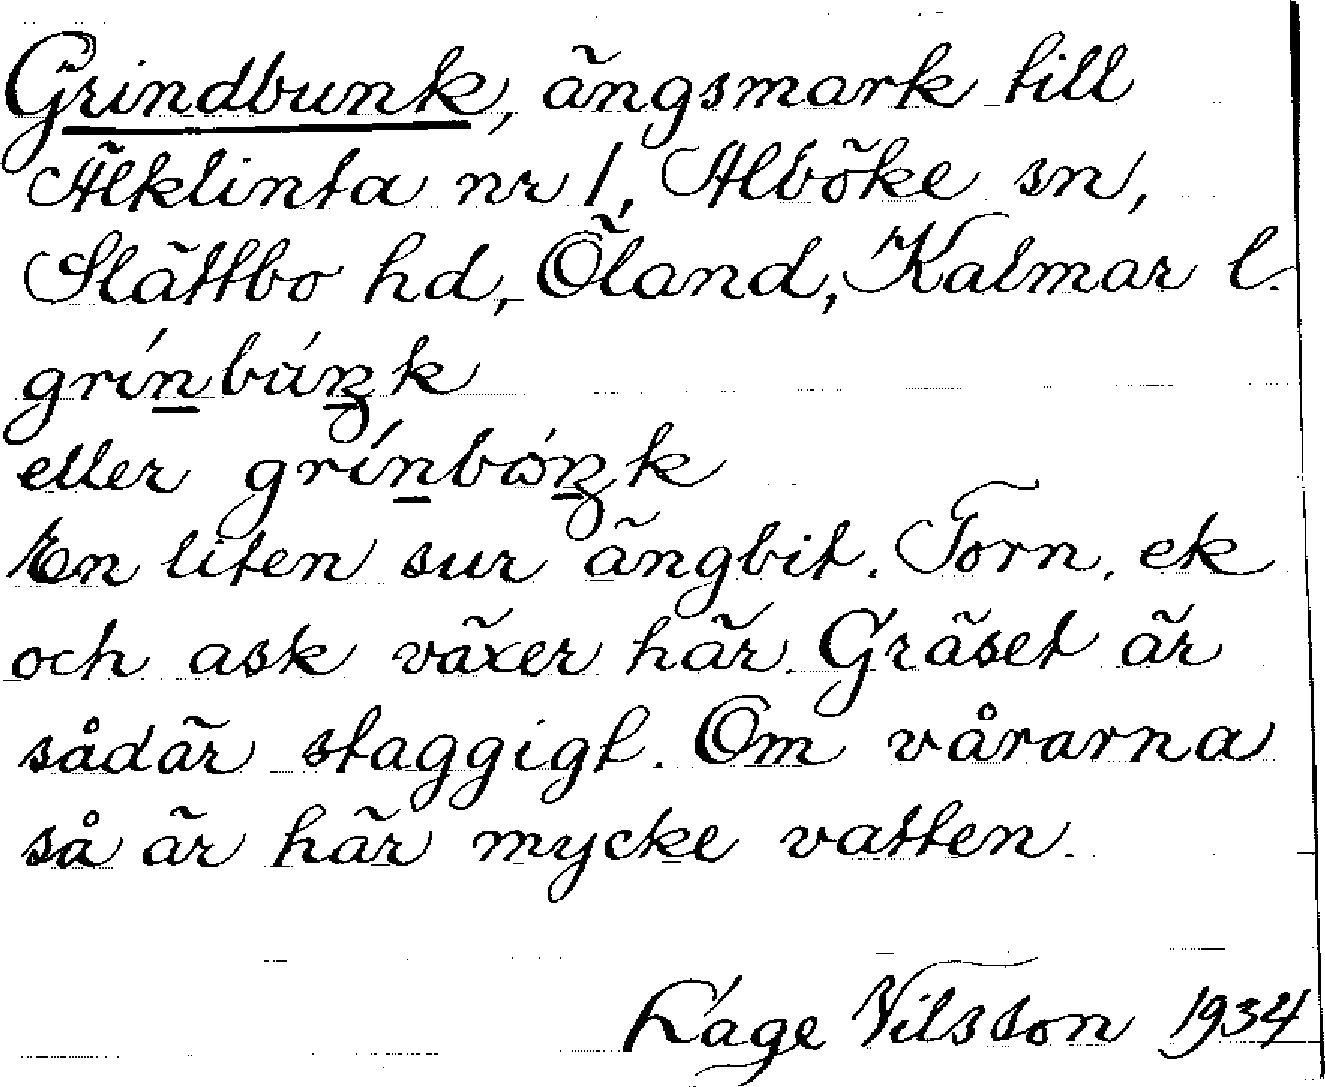 Grindbunk, ängsmark till
Älklinta nr 1, Alböke sn,
Slättbo hd, Öland, Kalmar l.
grínbúŋk
eller grínbóŋk
En liten sur ängbit. Torn, ek
och ask växer här. Gräset är
sådär staggigt. Om vårarna
så är här mycke vatten.
Låge Nilsson 1934